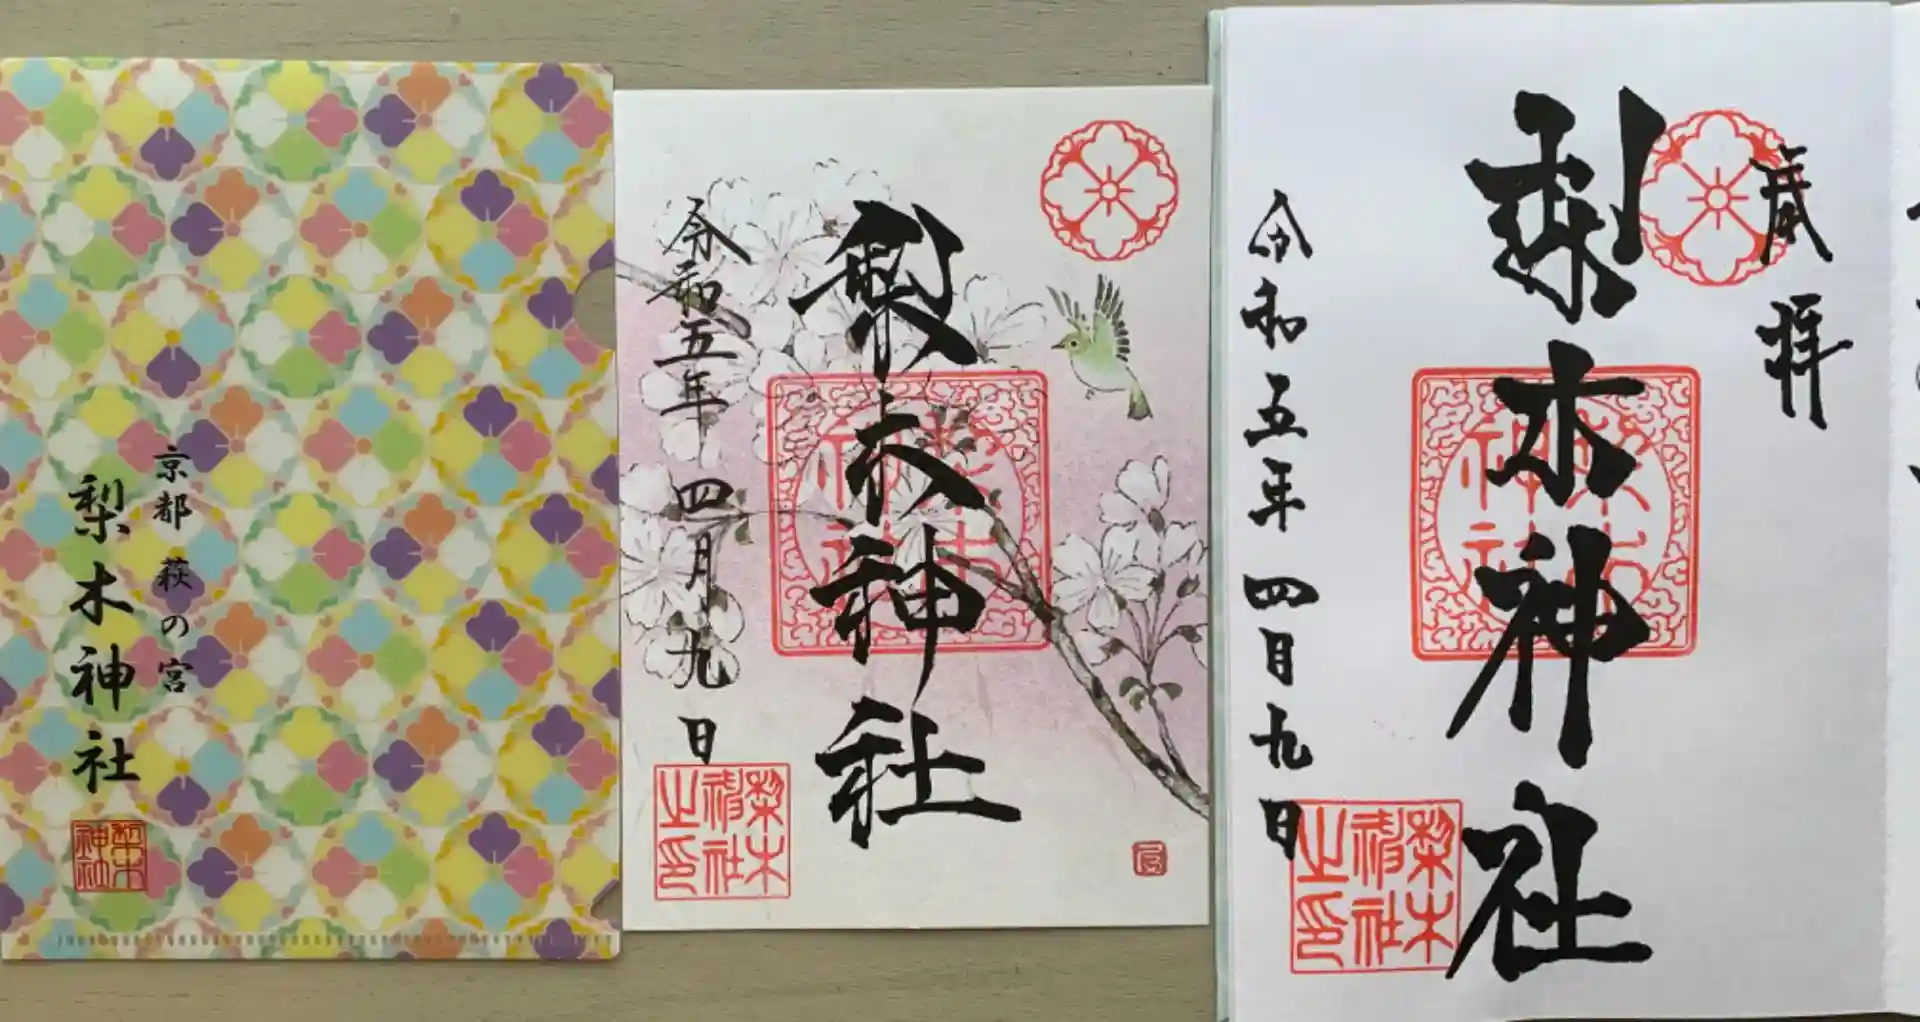 京都 萩の宮
梨木神社
梨木神社
梨木神社
令和五年四月九日
梨木神社之印
奉拝
梨木神社
令和五年四月九日
梨木神社之印